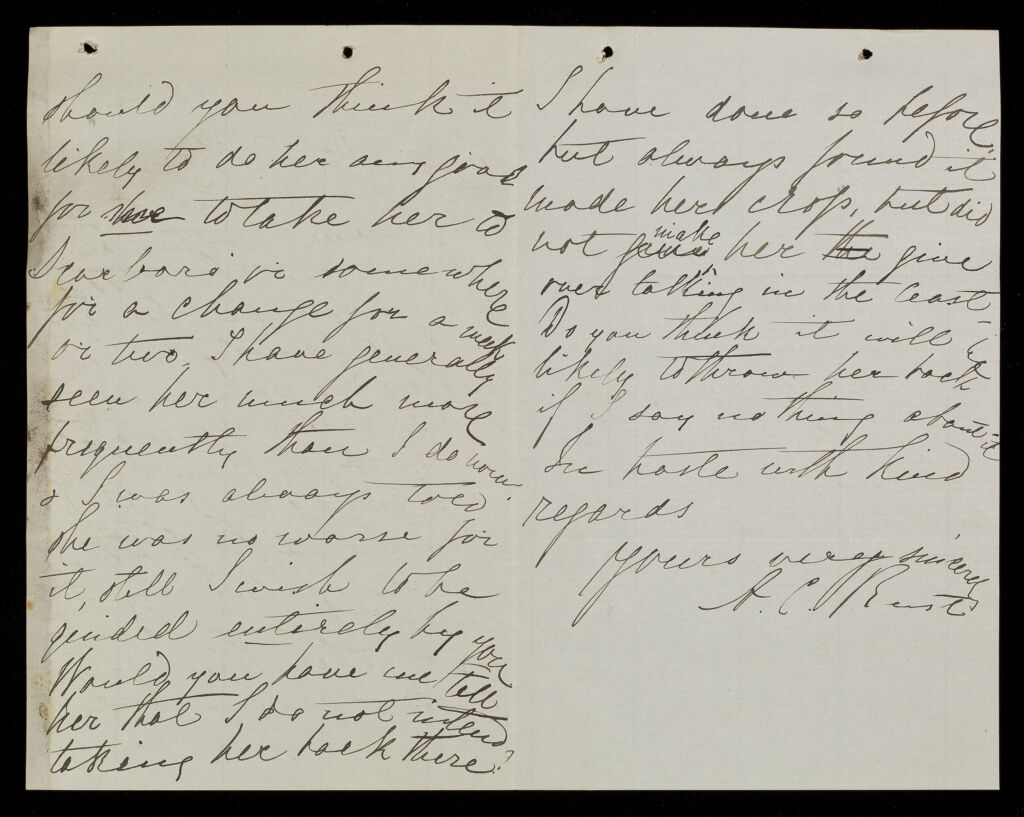 should you think it
likely to do her any good
for me to take her to
Scarboro' or somewhere
for a change for a week
or two, I have generally
seen her much more
frequently than I do now.
& I was always told
she was no worse for
it, still I wish to be
guided entirely by you
Would you have me tell
her that I do not intend
taking her back there?
I have done so before,
but always found it
made her crop, but did
not make her give
over talking in the least
Do you think it will be
likely to throw her back
if I say nothing about it
In haste with kind
regards
Yours very sincerely
A. C. Rust